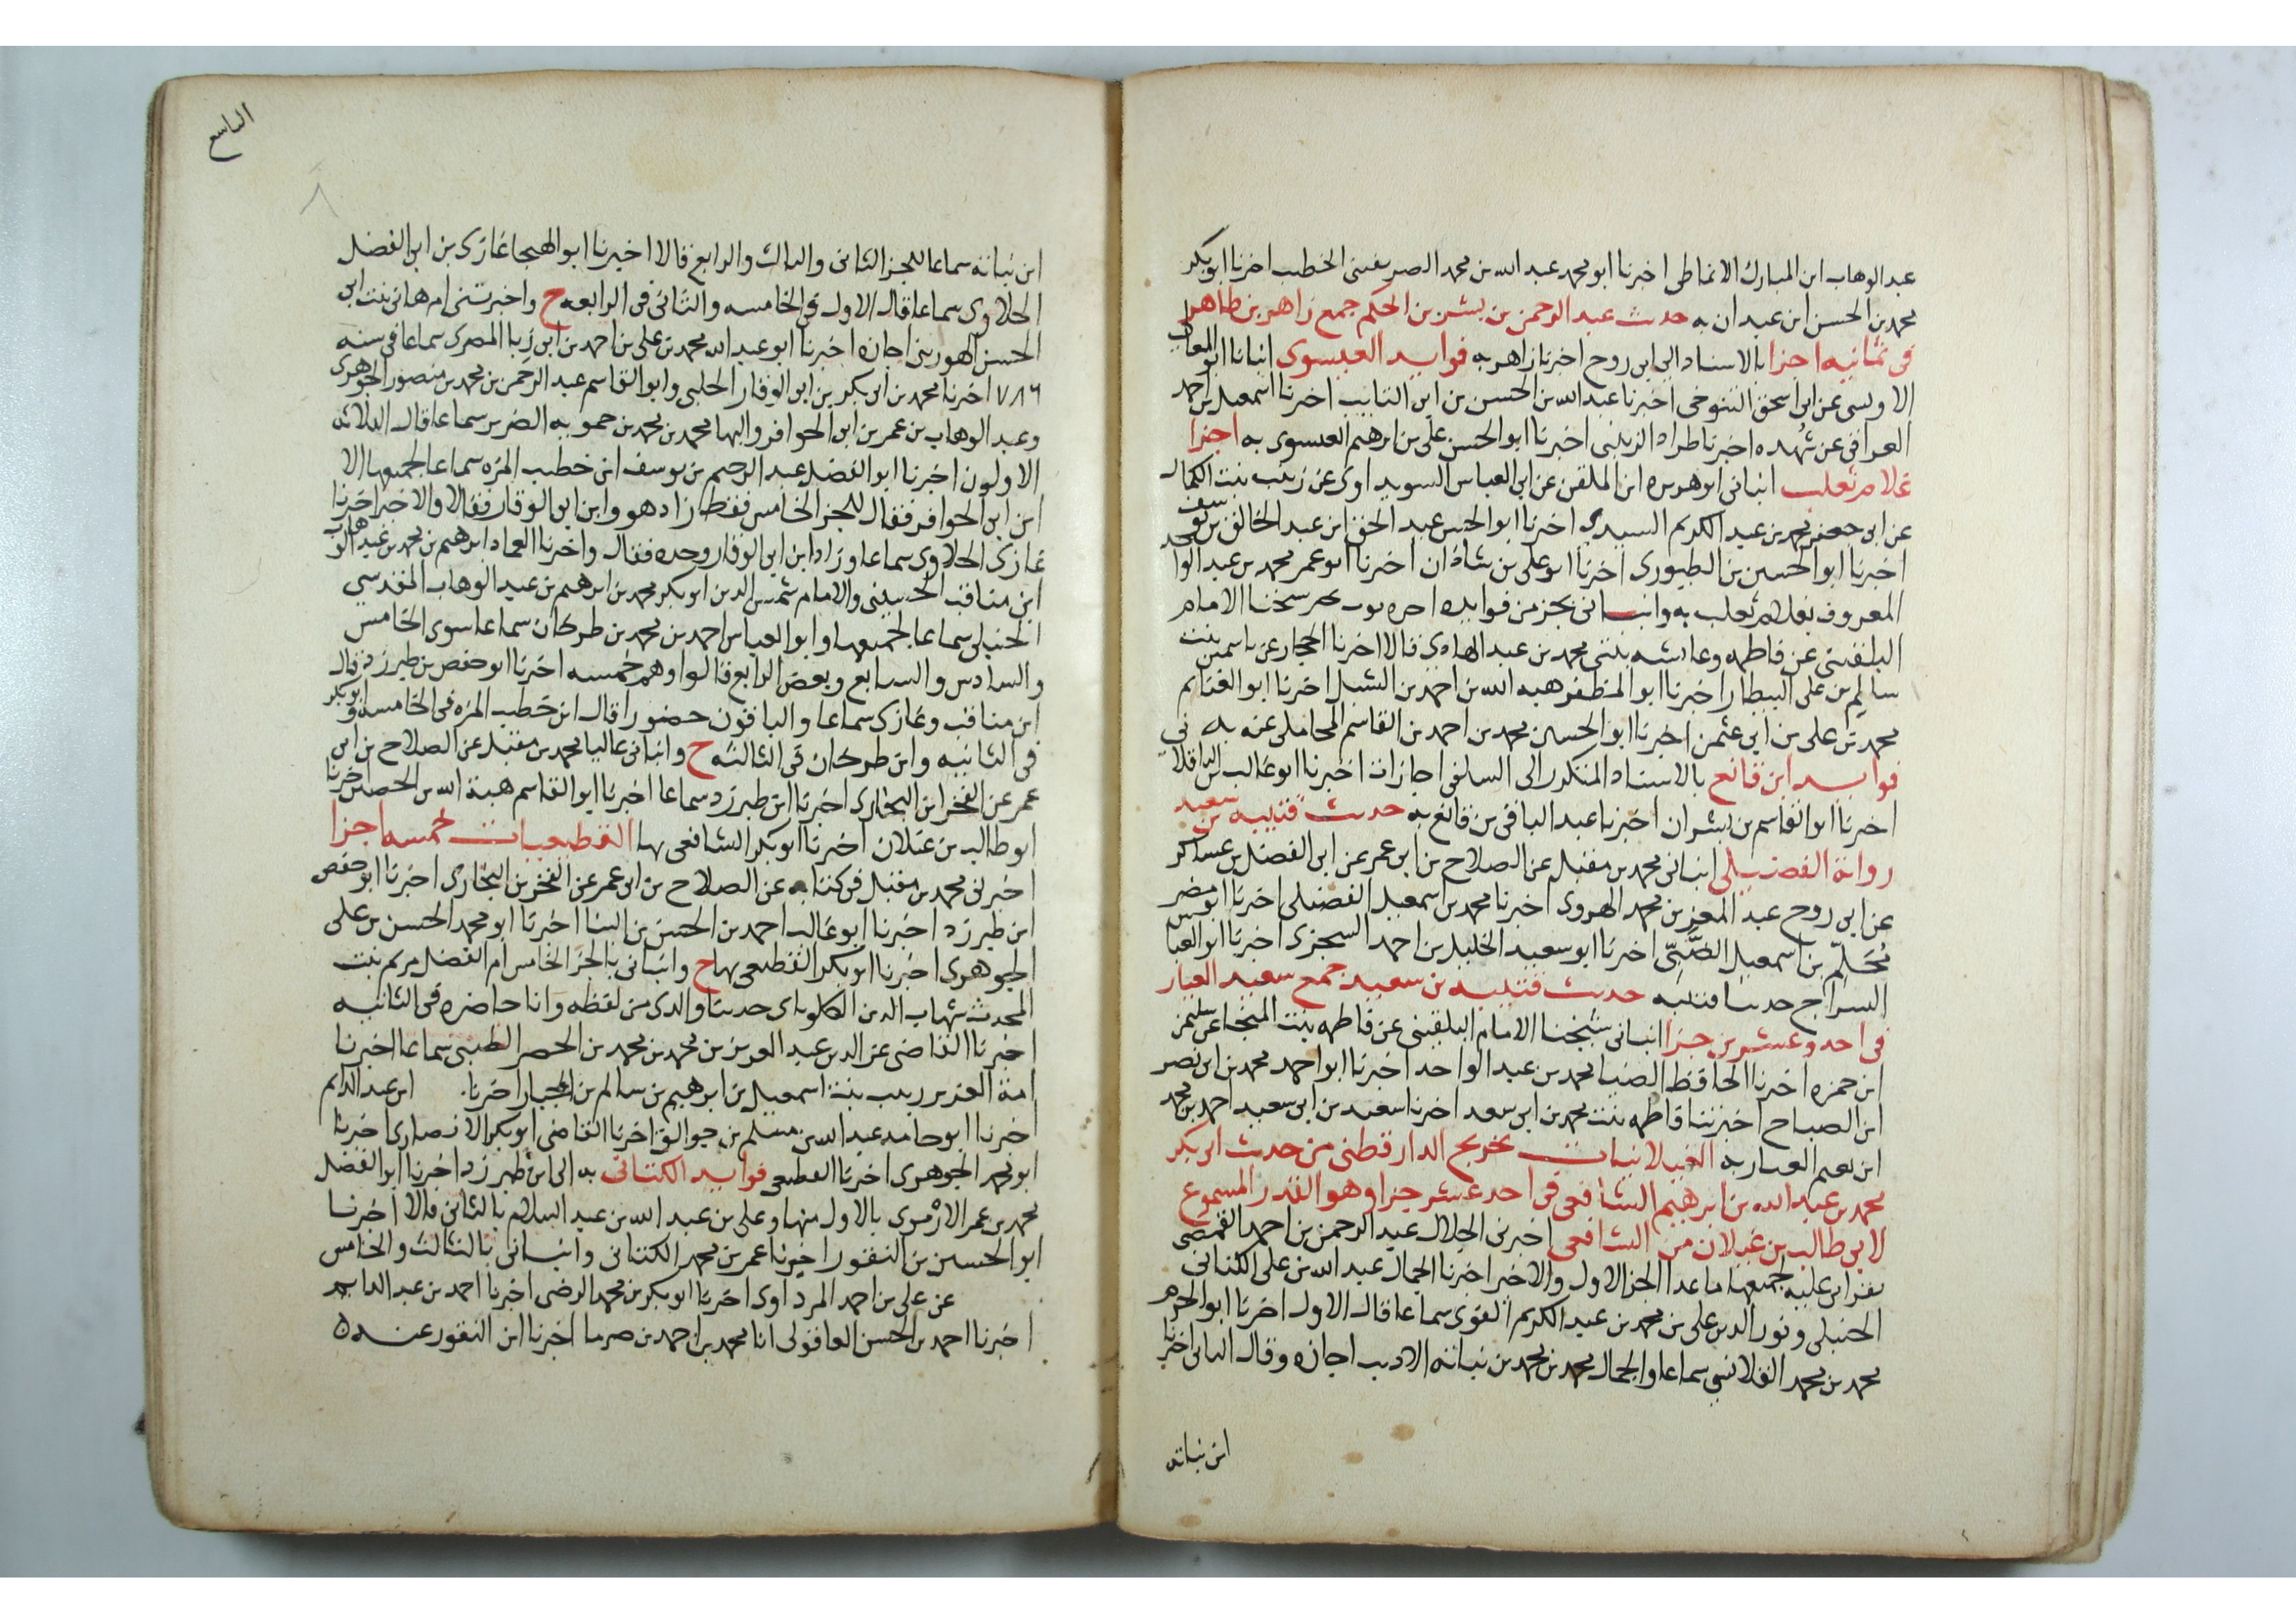 عبد الوهاب ابن المبارك الانماطى اخبرنا ابو محمد عبد الله بن محمد الصريفينى الخطيب اخبرنا ابو بكر
محمد بن الحسن ابن عبدان به حديث عبد الرحمن بن بشر بن الحكم جمع زاهر بن طاهر
فى ثمانيه اجزا بالاسناد الى ابى روح اخبرنا زاهر به فوايد العيسوى انبانا ابو المعالى
الاويسى عن ابى اسحق التنوخى اخبرنا عبد الله بن الحسن بن ابن التايب اخبرنا اسمعيل بن احمد
العراقى عن شهده اخبرنا طراد الزينبى اخبرنا ابو الحسن على بن ابرهيم العيسوى به اجزا
غلام ثعلب انبانى ابو هريره ابن الملقن عن ابى العباس السويداوى عن زينب بنت الكمال
عن ابى جعفر محمد بن عبد الكريم السيدى اخبرنا ابو الحسن عبد الحق ابن عبد الخالق بن يوسف
اخبرنا ابو الحسين بن الطيورى اخبرنا ابو على بن شاذان اخبرنا ابو عمر محمد بن عبد الواحد
المعروف بغلام ثعلب به وانبانى بجز من فوايده شيخنا الامام
البلقينى عن فاطمه وعائشه بنتى محمد بن عبد الهادى قالا اخبرنا الحجار عن ياسمين بنت
سالم بن على البيطار اخبرنا ابو المظفر هبه الله بن احمد بن الشبل اخبرنا ابو الغنايم
محمد بن على بن ابى عثمن اخبرنا ابو الحسين محمد بن احمد بن القاسم المحاملى عنه به
فوايد ابن قانع بالاسناد المتكرر الى السلفى اجازات اخبرنا ابو غالب الباقلا
اخبرنا ابو القاسم بن بشران اخبرنا عبد الباقى بن قانع به حديث قتيبه بن سعيد
رواية الفضيلى انبانى محمد بن مقبل عن الصلاح بن ابى عمر عن ابى الفضل بن عساكر
عن ابى روح عبد المعز بن محمد الهروى اخبرنا محمد بن اسمعيل الفضيلى اخبرنا ابو مضر
محلم بن اسمعيل الضبى اخبرنا ابو سعيد الخليل بن احمد السجزى اخبرنا ابو العباس
السراج حدثنا قتيبه حديث قتيبه بن سعيد جمع سعيد العيار
فى احد وعشرين جزا انبانى شيخنا الامام البلقينى عن فاطمه بنت المنجا عن سليمن
ابن حمزه اخبرنا الحافظ الضيا محمد بن عبد الواحد اخبرنا ابو احمد محمد بن ابى نصر
ابن الصباح اخبرتنا فاطمه بنت محمد بن ابى سعد اخبرنا سعيد بن ابى سعيد احمد بن محمد
ابن نعيم العيار به الغيلانيات تخريج الدارقطنى من حديث ابى بكر
محمد بن عبد الله بن ابرهيم الشافعى فى احد عشر جزا وهو القدر المسموع
لابى طالب بن غيلان من الشافعى اخبرنى الجلال عبد الرحمن بن احمد القمصى
بقراءتى عليه لجميعها ما عدا الجز الاول والاخير اخبرنا الجمال عبد الله بن على الكنانى
الحنبلى ونور الدين على بن محمد بن عبد الكريم الفوى سماعا قال الاول اخبرنا ابو الحرم
محمد بن محمد القلانسى سماعا والجمال محمد بن محمد بن نباتة الاديب اجازه وقال الثانى اخبرنا
ابن نباته
التاسع
٨
ابن نباته سماعا للجز الثانى والثالث والرابع قالا اخبرنا ابو الهيجا غازى بن ابى الفضل
الحلاوى سماعا قال الاول فى الخامسه والثانى فى الرابعه ح واخبرتنى ام هانى بنت ابى
الحسن الهورينى اجازه اخبرنا ابو عبد الله محمد بن على بن احمد بن ابى زبا المصرى سماعا فى سنه
٧٨٦ اخبرنا محمد بن ابى بكر بن ابى الوقار الحلبى وابو القاسم عبد الرحمن بن محمد بن منصور الجوهرى
وعبد الوهاب بن عمر بن ابى الحوافر والبها محمد بن محمد بن حمويه الضرير سماعا قال الثلاثه
الاولون اخبرنا ابو الفضل عبد الرحيم بن يوسف ابن خطيب المزه سماعا لجميعها الا
ابن ابى الحوافر فقال للجز الخامس فقط زاد هو وابن ابى الوقار فقالا والاخير اخبرنا
غازى الحلاوى سماعا وزاد ابن ابى الوقار وحده فقال واخبرنا العماد ابرهيم بن محمد بن عبد الوهاب
ابن مناقب الحسينى والامام شمس الدين ابو بكر محمد بن ابرهيم بن عبد الوهاب المقدسى
الحنبلى سماعا لجميعها وابو العباس احمد بن محمد بن طركان سماعا سوى الخامس
والسادس والسابع وبعض الرابع قالوا وهم خمسه اخبرنا ابو حفص بن طبرزد قال
ابن مناقب وغازى سماعا والباقون حضورا قال ابن خطيب المزه فى الخامسه وابو بكر
فى الثانيه وابن طركان فى الثالثه ح وانبانى عاليا محمد بن مقبل عن الصلاح بن ابى
عمر عن الفخر ابن البخارى اخبرنا ابن طبرزد سماعا اخبرنا ابو القاسم هبة الله بن الحصين اخبرنا
ابو طالب بن غيلان اخبرنا ابو بكر الشافعى بها القطيعيات خمسه اجزا
اخبرنى محمد بن مقبل فى كتابه عن الصلاح بن ابى عمر عن الفخر بن البخارى اخبرنا ابو حفص
ابن طبرزد اخبرنا ابو غالب احمد بن الحسن بن البنا اخبرنا ابو محمد الحسن بن على
الجوهرى اخبرنا ابو بكر القطيعى بها ح وانبانى بالجز الخامس ام الفضل مريم بنت
المحدث شهاب الدين الكلوتاى حدثنا والدى من لفظه وانا حاضره فى الثانيه
اخبرنا القاضى عز الدين عبد العزيز بن محمد بن محمد بن الخضر الطيبى سماعا اخبرنا
امة العزيز زينب بنت اسمعيل بن ابرهيم بن سالم بن الخباز اخبرنا ابن عبد الدايم
اخبرنا ابو حامد عبد الله بن مسلم بن جوالق اخبرنا القاضى ابو بكر الانصارى اخبرنا
ابو محمد الجوهرى اخبرنا القطيعى فوايد الكتانى به الى ابن طبرزد اخبرنا ابو الفضل
محمد بن عمر الارموى بالاول منها وعلى بن عبد الله بن عبد السلام بالثانى قالا اخبرنا
ابو الحسين بن النقور اخبرنا عمر بن محمد الكتانى وانبانى بالثالث والخامس
عن على بن احمد المرداوى اخبرنا ابو بكر بن محمد الرضى اخبرنا احمد بن عبد الدايم
اخبرنا احمد بن الحسن العاقولى انا محمد بن احمد بن صرما اخبرنا ابن النقور عنه ه